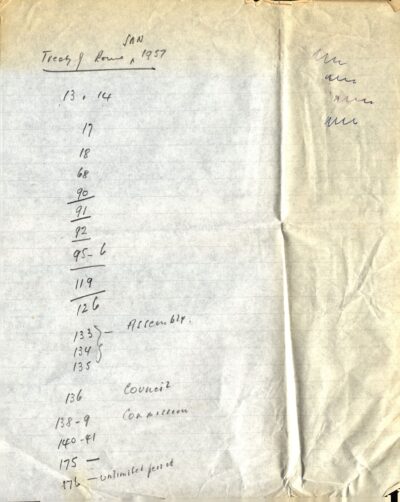 JAN
Treaty of Rome, 1957
13 . 14
17
18
68
90
91
92
95-6
119
126
133 } - Assembly.
134
135
136 Council
138-9 Commission
140-41
175 —
176 — unlimited period